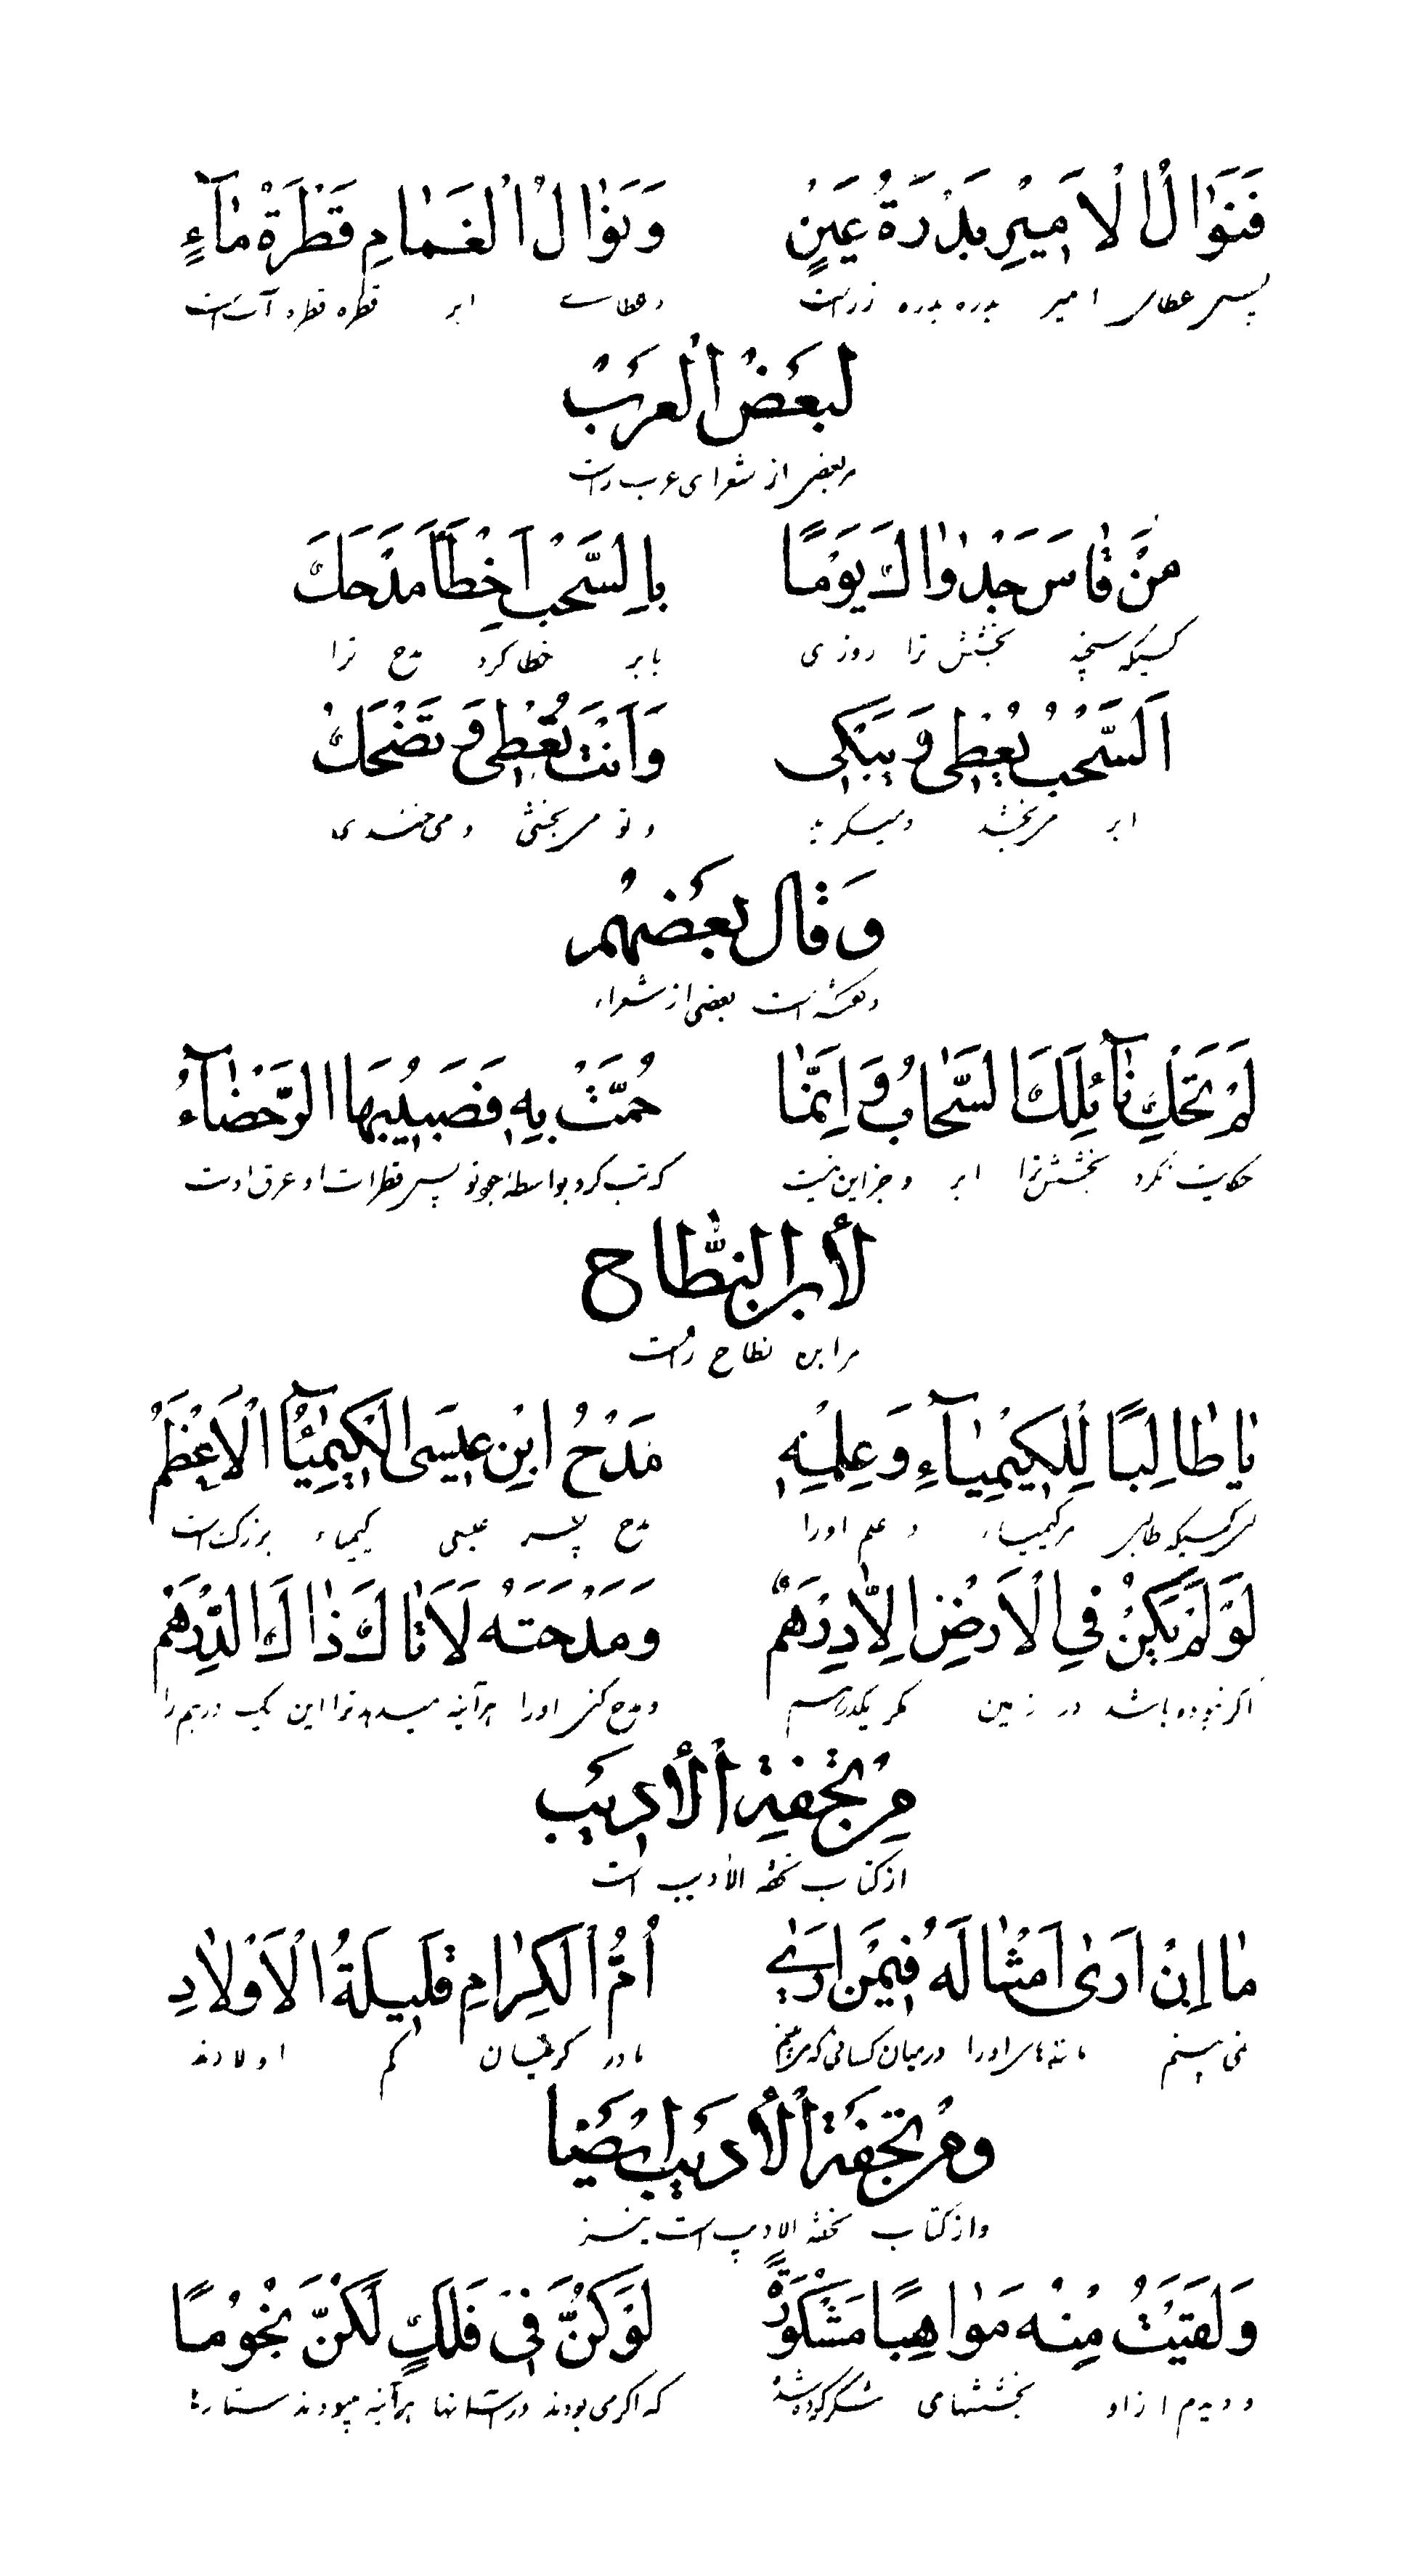 فَنَوَالُ الْأَمِيرِ بَدْرَةُ عَيْنٍ    وَنَوَالُ الْغَمَامِ قَطْرَةُ مَآءٍ
پس عطای امیر بدره بدره زر است    و عطاے ابر قطره قطره آب است
لِبَعْضِ الْعَرَبْ
مر بعضی از شعرای عرب راست
مَنْ قَاسَ جَدْوَاكَ يَوْمًا    بِالسُّحْبِ اَخْطَأَ مَدْحَكَ
کسیکه سنجد بخشش ترا روزی    بابر خطا کرد مدح ترا
اَلسُّحْبُ يُعْطِي وَيَبْكِي    وَاَنْتَ تُعْطِي وَتَضْحَكْ
ابر می بخشد و میگرید    و تو می بخشی و می خندی
وَقَالَ بَعْضُهُمْ
و گفته است بعضی از شعراء
لَمْ تَحْكِ نَآئِلَكَ السَّحَابُ وَاِنَّمَا    حُمَّتْ بِهِ فَصَبِيبُهَا الرُّحَضَآءُ
حکایت نکرد بخشش ترا ابر و جز این نیست    که تب کرد بواسطه جود تو پس قطرات او عرق اوست
لِأَبْنِ النَّطَّاح
مر ابن نطاح راست
يَا طَالِبًا لِلْكِيمِيَآءِ وَعِلْمِهِ    مَدْحُ ابْنِ عِيسَى الْكِيمِيَآءُ الْاَعْظَمُ
هر کسیکه طالب مر کیمیاء و علم اورا    مدح پسر عیسی کیمیاء بزرگ است
لَوْ لَمْ يَكُنْ فِي الْاَرْضِ اِلَّا دِرْهَمٌ    وَمَدَحْتَهُ لَاَتَاكَ ذَاكَ الدِّرْهَمُ
اگر نبوده باشد در زمین مگر یکدرهم    و مدح کنی اورا هرآینه میدهد ترا این یک درهم را
مِنْ تُحْفَةِ الْأَدِيبْ
از کتاب تحفه الادیب است
مَا اِنْ اَرَى اَمْثَالَهُ فِيمَنْ اَرَى    اُمُّ الْكِرَامِ قَلِيلَةُ الْاَوْلَادِ
نمی بینم مانندهای اورا در میان کسانی که می بینم    مادر کریمان کم اولادند
وَمِنْ تُحْفَةِ الْأَدِيبِ اَيْضًا
و از کتاب تحفه الادیب است نیز
وَلَقَيْتُ مِنْهُ مَوَاهِبًا مَشْكُورَةً    لَوْ كُنَّ فِي فَلَكٍ لَكُنَّ نُجُومًا
و دیدم از او بخششهای شکر کرده شده    که اگر می بودند در آسمانها هرآینه میبودند ستاره ها